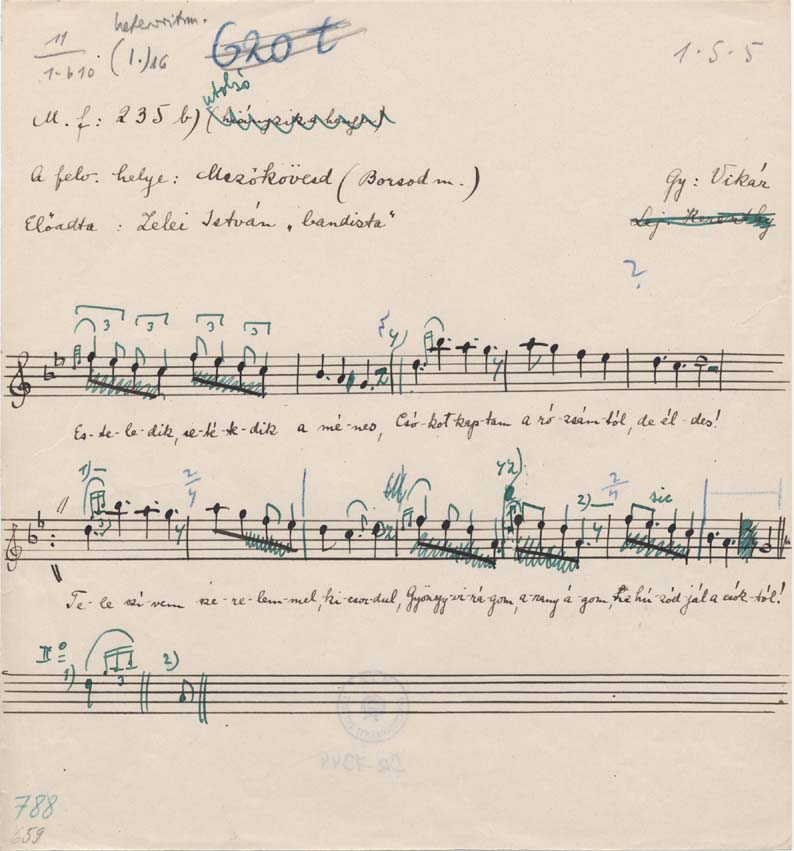 heteroritm.
11
1-b10 (1.)16 620 t 1.5.5
utolsó
M. f: 235 b) (hiányzik a henger)
A felv. helye: Mezőkövesd (Borsod m.) Gy: Vikár
Előadta: Zelei István „bandista"
?
3 3 3 3
Es-te-le-dik, se-té-te-dik a mé-nes, Csó-kot kap-tam a ró-zsám-tól, de él-des!
1) 2/4 2) 2/4 sic
Te-le szí-vem sze-re-lem-mel, ki-csor-dul, Gyöngy-vi-rá-gom, a-rany á-gom, hú-zód-jál a csók-tól!
II
1) 3 2)
788
659